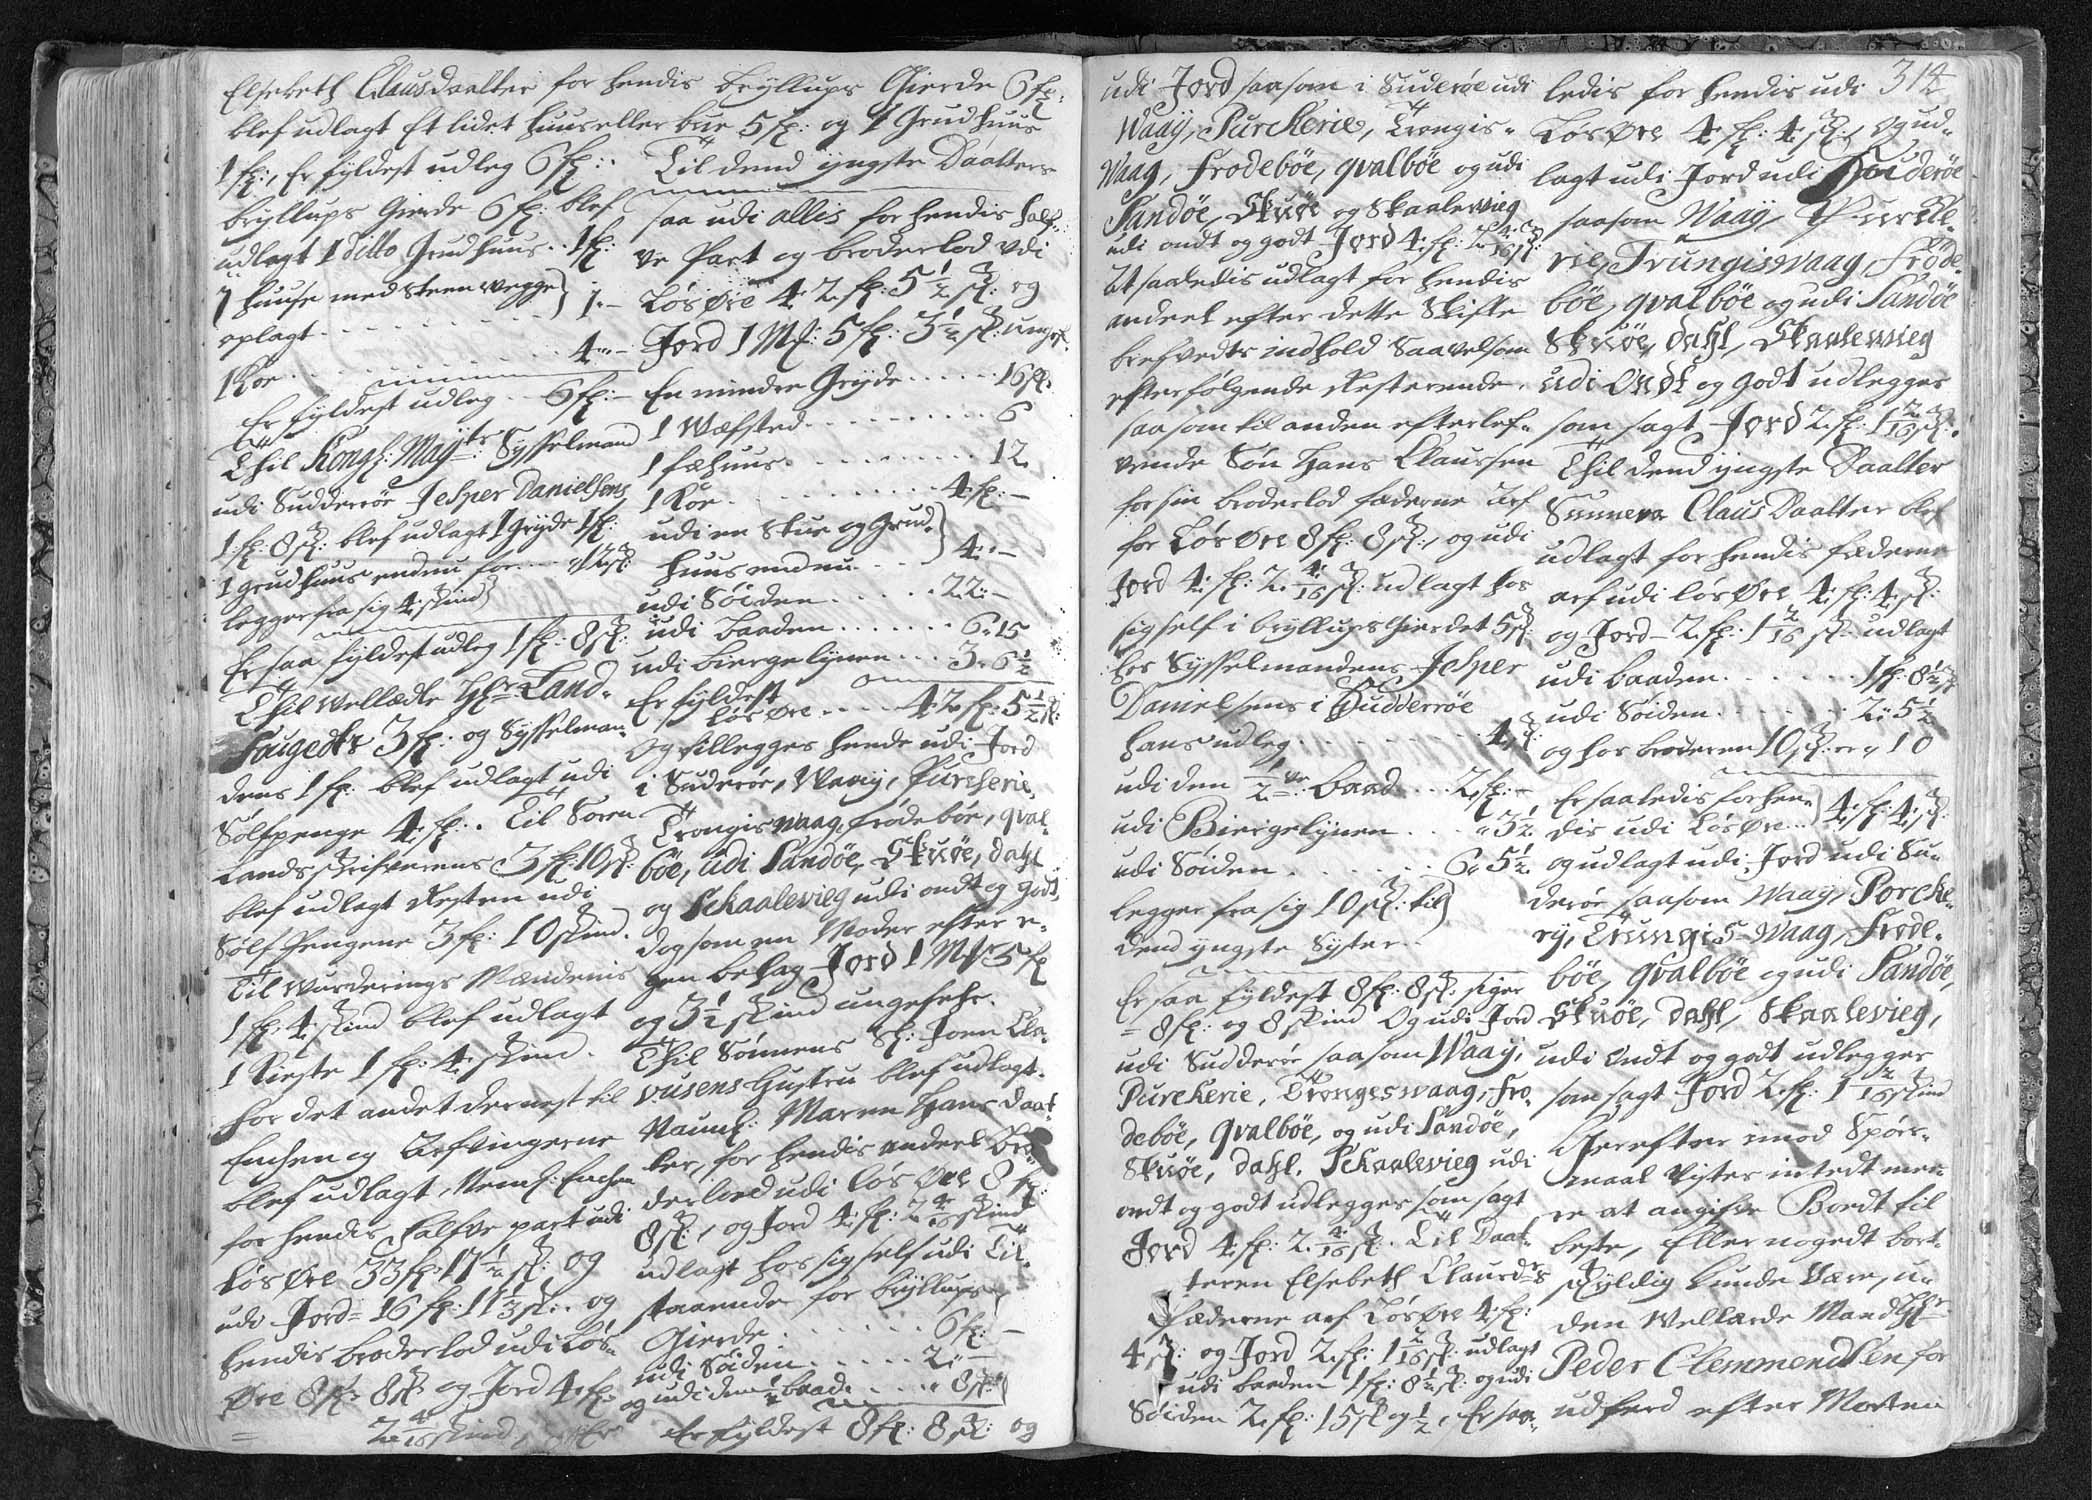 Elsebeth Clausdaatter for hendis brÿllups Gierde 6 fl:
blef udlagt Et lidet huus eller bur 5 fl: og 1 Grudhuus
1 fl:, Er fyldest udleg 6 fl:.
brÿllups Gierde 6 fl: blef
udlagt 1 ditto Grudhuus . . 1 fl:
7 huuse med Steen wegge
oplagt . . . 1 „ –
1 Koe . . . 4 „ –
Er fÿldest udleg . . 6 fl: –
Thil Kongl: Mayts: Sysselmand
udi Sudderöe Jesper Danielsens
1 fl: 8 sk: blef udlagt 1 Grÿde 1 fl:
1 grudhuus endnu for . . . 12 sk:
legger fra sig 4 skind
Er saa fyldest udleg 1 fl: 8 sk:
Thil Wellædle Hr Land-
fougedts 3 fl: og Sysselman-
dens 1 fl: blef udlagt udi
Sölfpenge 4 fl:. Til Soren-
Landsskrifverens 3 fl: 10 sk:
blef udlagt Resten udi
Sölf Pengene 3 fl: 10 skind.
Til Wurderings Mændenis
1 fl: 4 skind blef udlagt
1 Kieste 1 fl: 4 skind.
For det andet dernest til
Enchen og Arfvingerne
blef udlagt, Neml: Enchen
for hendis halfve part udi
Lös Öre 33 fl: 17½ sk: og
udi Jord= 16 fl: 11⅓ sk: og
hendis broderlod udi Lös-
Öre 8 fl: 8 sk: og Jord 4 fl:
2 4/16 skind
Til dend yngste Daatters
saa udi allis for hendis half-
ve Part og broderlod udi
Lös Öre 42 fl: 5½ sk: og
Jord 1 Mk: 5 fl: 3½ sk: ungef.
En mindre Grÿde . . . . 16 sk:
1 Wæfsted . . . 6
1 fæhuus . . . 12
1 Koe . . . 4 fl: –
udi en Stue og Grud-
huus endnu . . . 4 „ –
udi Söiden . . . 22 „ –
udi baaden . . . 6 „ 15
udi biergelÿnen . . . 3 „ 6½
Er fyldest
Lös Öre . . . 42 fl: 5½ sk:
Og tillegges hende udi Jord
i Suderöe, Waaÿ, Purcherie,
Trongiswaag, frödeböe, qval-
böe, udi Sandöe, Skuöe, dahl
og Schaalevieg udi ondt og godt,
dog som en Moder efter e-
gen behag Jord 1 Mk: 5 fl
og 3½ skind ungefehr.
Thil Sönnens Sl: Joen Cla-
vusens Hustru blef udlagt.
Naunl: Maren Hans daat-
ter, for hendis andeel Bro-
derlod udi Lös Öre 8 fl:
8 sk:, og Jord 4 fl: 2 4/16 skind
udlagt hos sig self udi Til-
staaende for brÿllups
Gierde . . . 6 fl: –
udi Söiden . . . 2 „ –
og udi den ½ baad . . . „ 8 sk:
Er fyldest 8 fl: 8 sk: og
314
udi Jord saasom i Suderöe udi
Waaÿ, Purckerie, Trongis-
Waag, Frodeböe, qvalböe og udi
Sandöe, Skuöe og Skaalevieg
udi ondt og godt Jord 4 fl: 2 4/16 sk:
At saaledis udlagt for hendis
andeel efter dette Skifte
brefvedts indhold Saavelsom
efterfölgende Resterende,
saasom til anden efterlef-
vende Sön Hans Claussen
for sin broderlod fæderne Arf
for Lös Öre 8 fl: 8 sk:, og udi
Jord 4 fl: 2 4/16 sk: udlagt hos
sig self i brÿllups Gierdet 5 sk:
hos Sysselmandens Jesper
Danielsens i Sudderröe
hans udleg . . . 4 sk:
udi den ½ve baad . . . 2 fl: –
udi Biergelÿnen . . . „ 3½
udi Söiden . . . 6 „ 5½
legger fra sig 10 sk: til
dend yngste Syster.
Er saa fyldest 8 fl: 8 sk: siger
= 8 fl: og 8 skind Og udi Jord
udi Sudderöe saasom Waaÿ,
Purckerie, Trongeswaag, fro-
deböe, qvalböe, og udi Sandöe,
Skuöe, dahl, Schaalevieg udi
ondt og godt udlegges som sagt
Jord 4 fl: 2 4/16 sk. Til Daat-
teren Elsebeth Clausdrs
Fæderne arf Lös Öre 4 fl:
4 sk: og Jord 2 fl: 1 2/16 sk: udlagt
udi baaden 1 fl: 8½ sk: og udi
Söiden 2 fl: 15 sk og ½, Er saa-
ledis for hendis udi
Lös Öre 4 fl: 4 sk:, Og ud-
lagt udi Jord udi Suderöe
saasom Waaÿ, Purcke-
rie, Trungiswaag, fröde-
böe, qvalböe og udi Sandöe
Skuöe, dahl, Skaalewieg
udi Ondt og Godt udlegges
som sagt Jord 2 fl: 1 2/16 sk:.
Thil dend yngste Daatter
Sunneva Claus Daatter blef
udlagt for hendis fæderne
arf udi lös Öre 4 fl: 4 sk:
og Jord – 2 fl: 1 2/16 sk: udlagt
udi baaden . . . 1 fl: 8½ sk
udi Söiden . . . 2 „ 5½
og hos broderen 10 sk: er „ 10
Er saaledis for hen-
dis udi Lös Öre . . . 4 fl: 4 sk:
og udlagt udi Jord udi Su-
deröe saasom Waaÿ, Porcke-
rÿ, Trungis-Waag, Frode-
böe, qvalböe og udi Sandöe,
Skuöe, dahl, Skaalevieg,
udi Ondt og godt udlegges
som sagt Jord 2 fl: 1 2/16 skind
Herefter imod Spörs-
maal Vistes intedt mee-
re at angifve Bordt til
beste, Eller nogedt bort-
skyldig kunde Være, u-
den Wellærde Mand Hr
Peder Clemmendsen for
udferd efter Morten